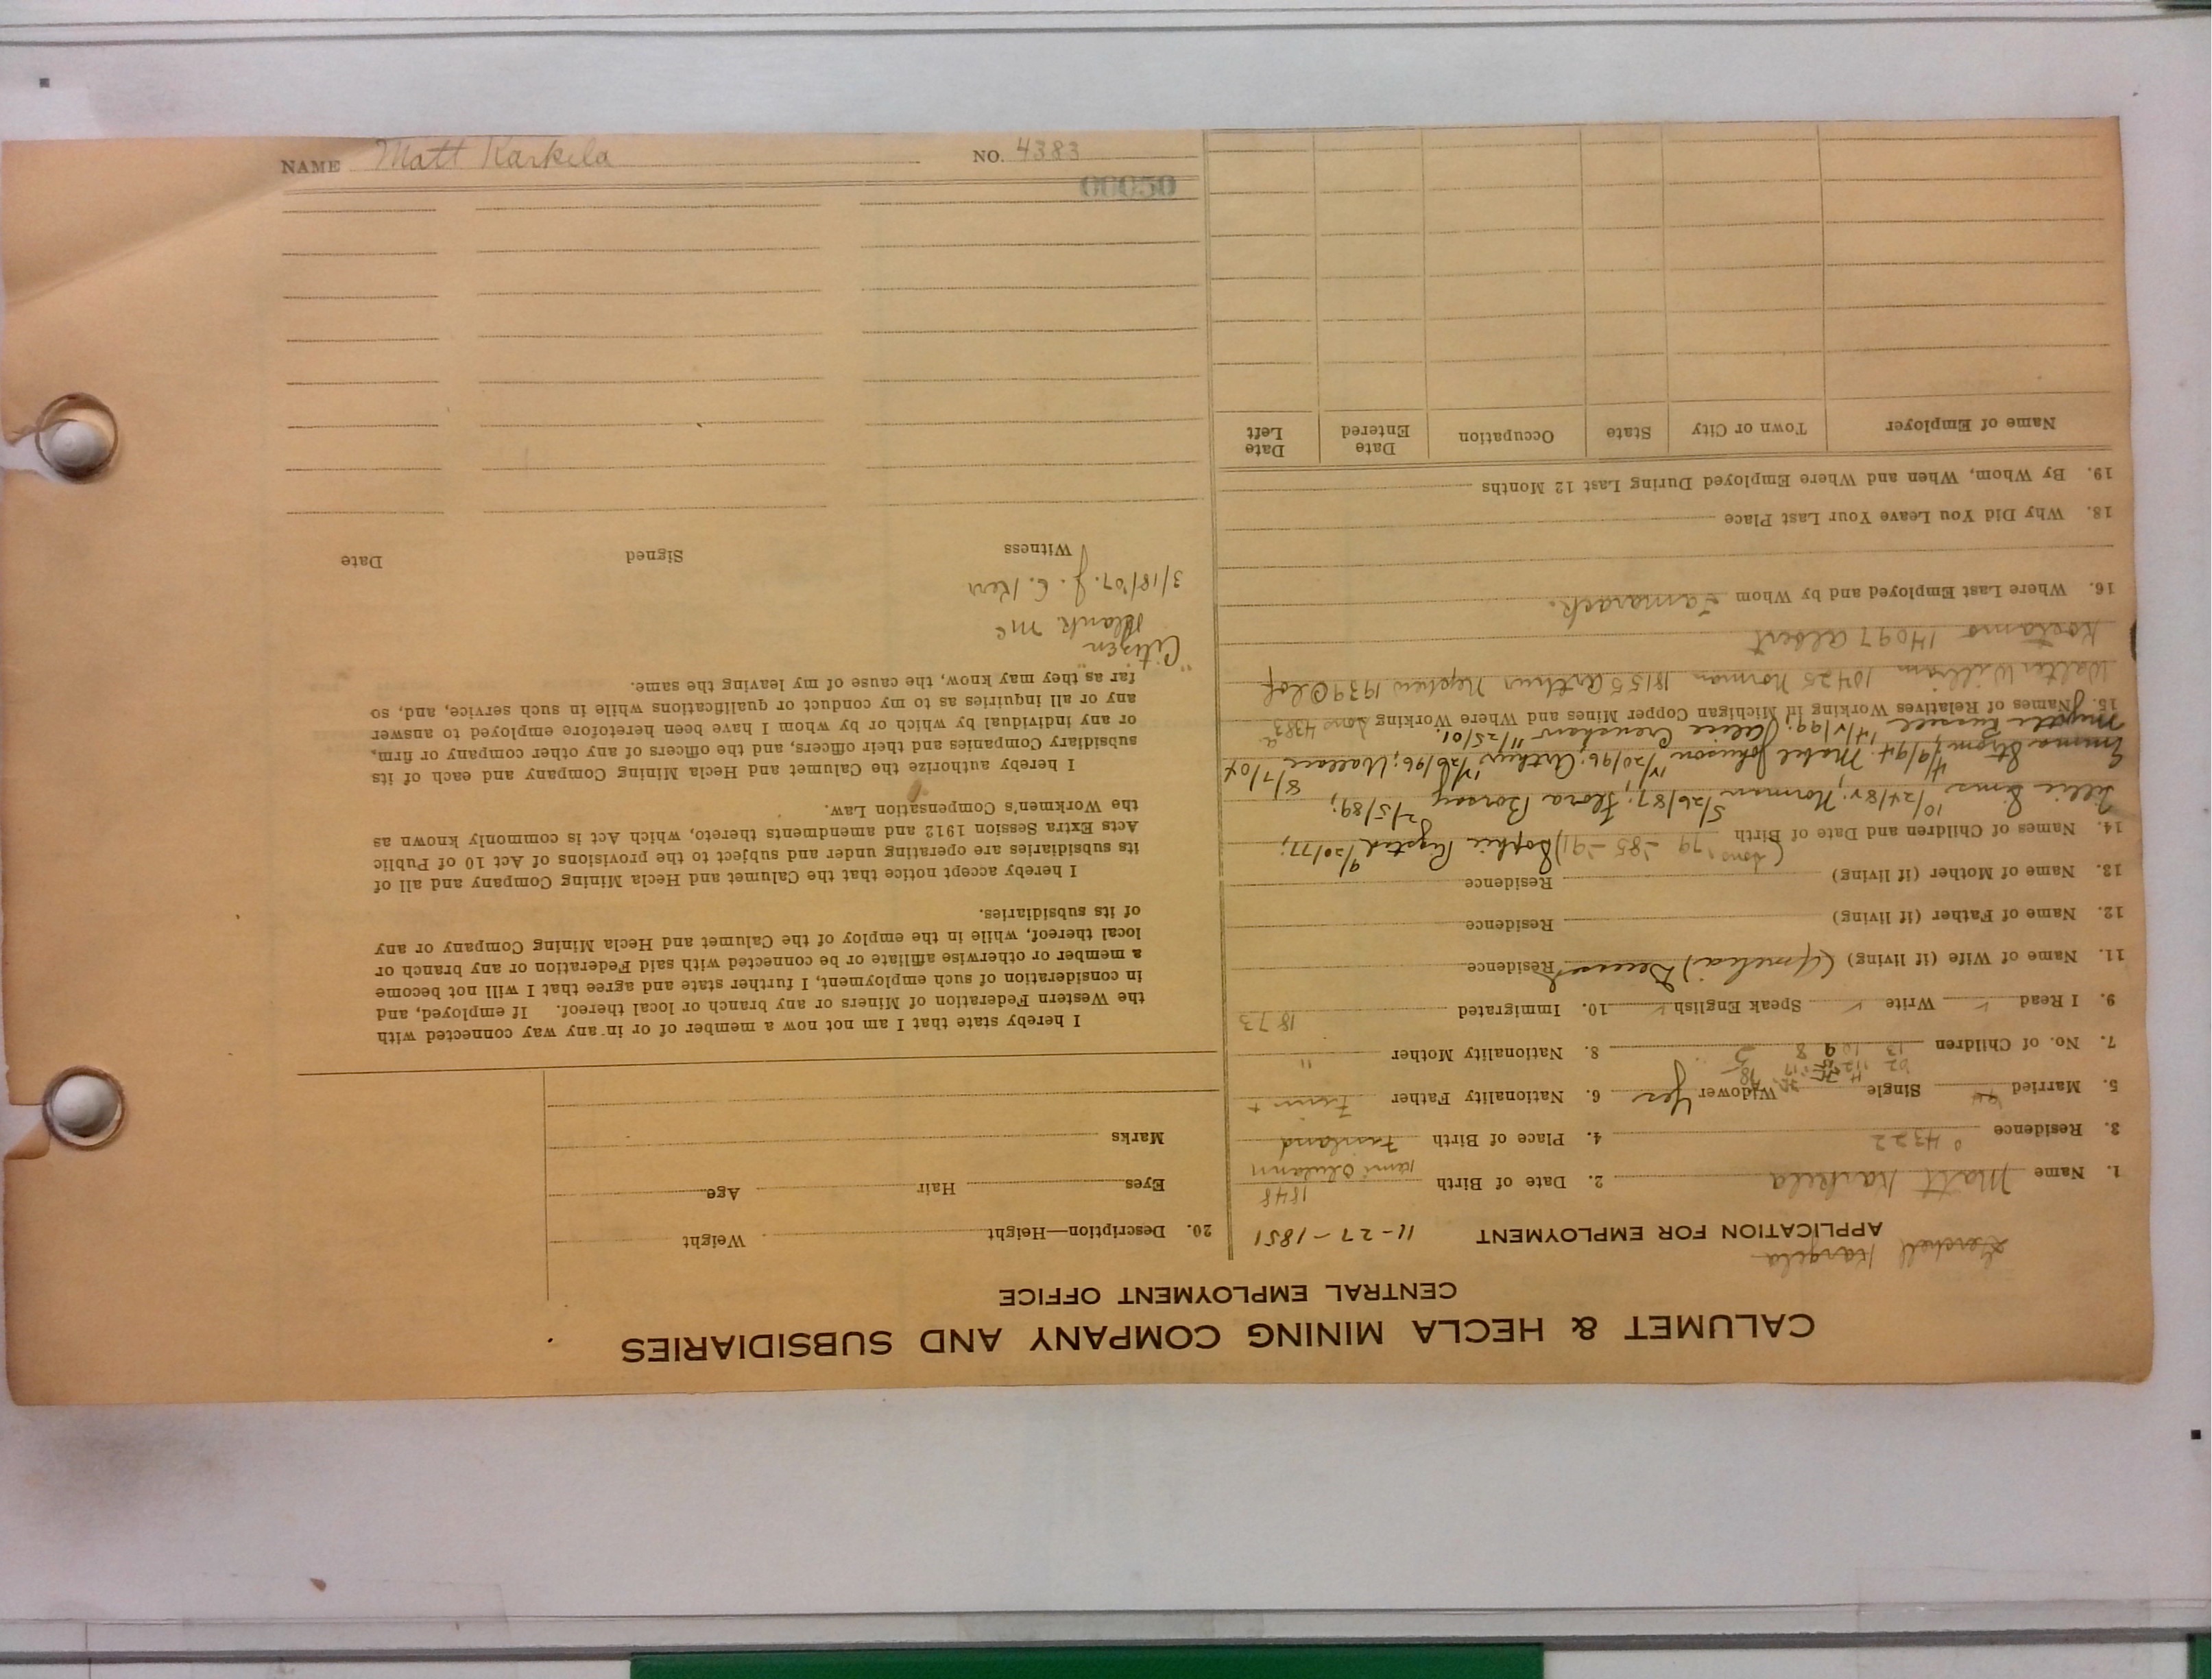 NAME Matt Karkela NO. 4383
00050
CALUMET & HECLA MINING COMPANY AND SUBSIDIARIES
CENTRAL EMPLOYMENT OFFICE
Kargela
APPLICATION FOR EMPLOYMENT 11-27-1851
1. Name Matt Karkela 2. Date of Birth 1848
3. Residence 4322 4. Place of Birth Finland
5. Married Single Widower Yes 6. Nationality Father Finn
7. No. of Children 13 10 9 8 8. Nationality Mother "
9. I Read ✓ Write ✓ Speak English ✓ 10. Immigrated 1873
11. Name of Wife (if living) (Amelia) Deceased Residence
12. Name of Father (if living) Residence
13. Name of Mother (if living) Residence
14. Names of Children and Date of Birth (sons 79 - 85 - 91) Sophie 9/20/77;
Lillie Sims 10/24/82; Norman 5/26/87; Flora 2/5/89;
Emma Strom 4/9/94; Mabel Johnson 12/20/96; Arthur 12/20/96; Wallace 8/7/04
Myrtle Russell 12/12/99; Alice Crenshaw 11/25/01.
15. Names of Relatives Working in Michigan Copper Mines and Where Working Sons 4383
Walter William 10425 Norman 18155 Arthur Nephew 1939 Olof
14097 Albert
16. Where Last Employed and by Whom Tamarack.
18. Why Did You Leave Your Last Place
19. By Whom, When and Where Employed During Last 12 Months
Name of Employer Town or City State Occupation Date Entered Date Left
20. Description—Height Weight
Eyes Hair Age
Marks
I hereby state that I am not now a member of or in any way connected with
the Western Federation of Miners or any branch or local thereof. If employed, and
in consideration of such employment, I further state and agree that I will not become
a member or otherwise affiliate or be connected with said Federation or any branch or
local thereof, while in the employ of the Calumet and Hecla Mining Company or any
of its subsidiaries.
I hereby accept notice that the Calumet and Hecla Mining Company and all of
its subsidiaries are operating under and subject to the provisions of Act 10 of Public
Acts Extra Session 1912 and amendments thereto, which Act is commonly known as
the Workmen's Compensation Law.
I hereby authorize the Calumet and Hecla Mining Company and each of its
subsidiary Companies and their officers, and the officers of any other company or firm,
or any individual by which or by whom I have been heretofore employed to answer
any or all inquiries as to my conduct or qualifications while in such service, and, so
far as they may know, the cause of my leaving the same.
"Citizen"
Blank Mc
3/18/07. J. C. Kerr
Witness Signed Date